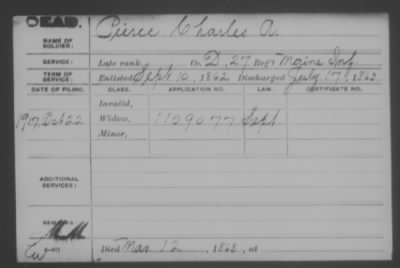 DEAD.
NAME OF SOLDIER: Pierce Charles A.
SERVICE: Late rank, Co. D, 27 Reg't Maine Inf.
TERM OF SERVICE: Enlisted Sept. 10, 1862 Discharged July 17, 1863
DATE OF FILING. CLASS. APPLICATION NO. LAW. CERTIFICATE NO.
Invalid,
1917, Oct 22 Widow, 1109077 Sept
Minor,
ADDITIONAL SERVICES:
REMARKS:
Died Mar. 12, 1863, at